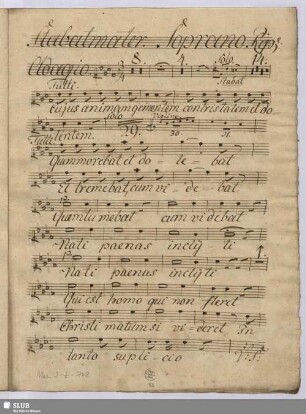 Stabat mater. Soprano Rip:
Adagio 8. 4. Solo 14.
Stabat
Tutti
cujus animam gementem contristatem et do
Solo
lentem. 29. 30 31.
Tutti
Quae morebat et do - le - bat
Et tremebat cum vi - de - bat
Quae mlu mebat cum vi debat
Nati paenas inclÿ - ti
Na ti paenas inclÿti
Qui est homo qui non fleret
Christi matum si vi - deret, in
tanto suplicio
SLUB